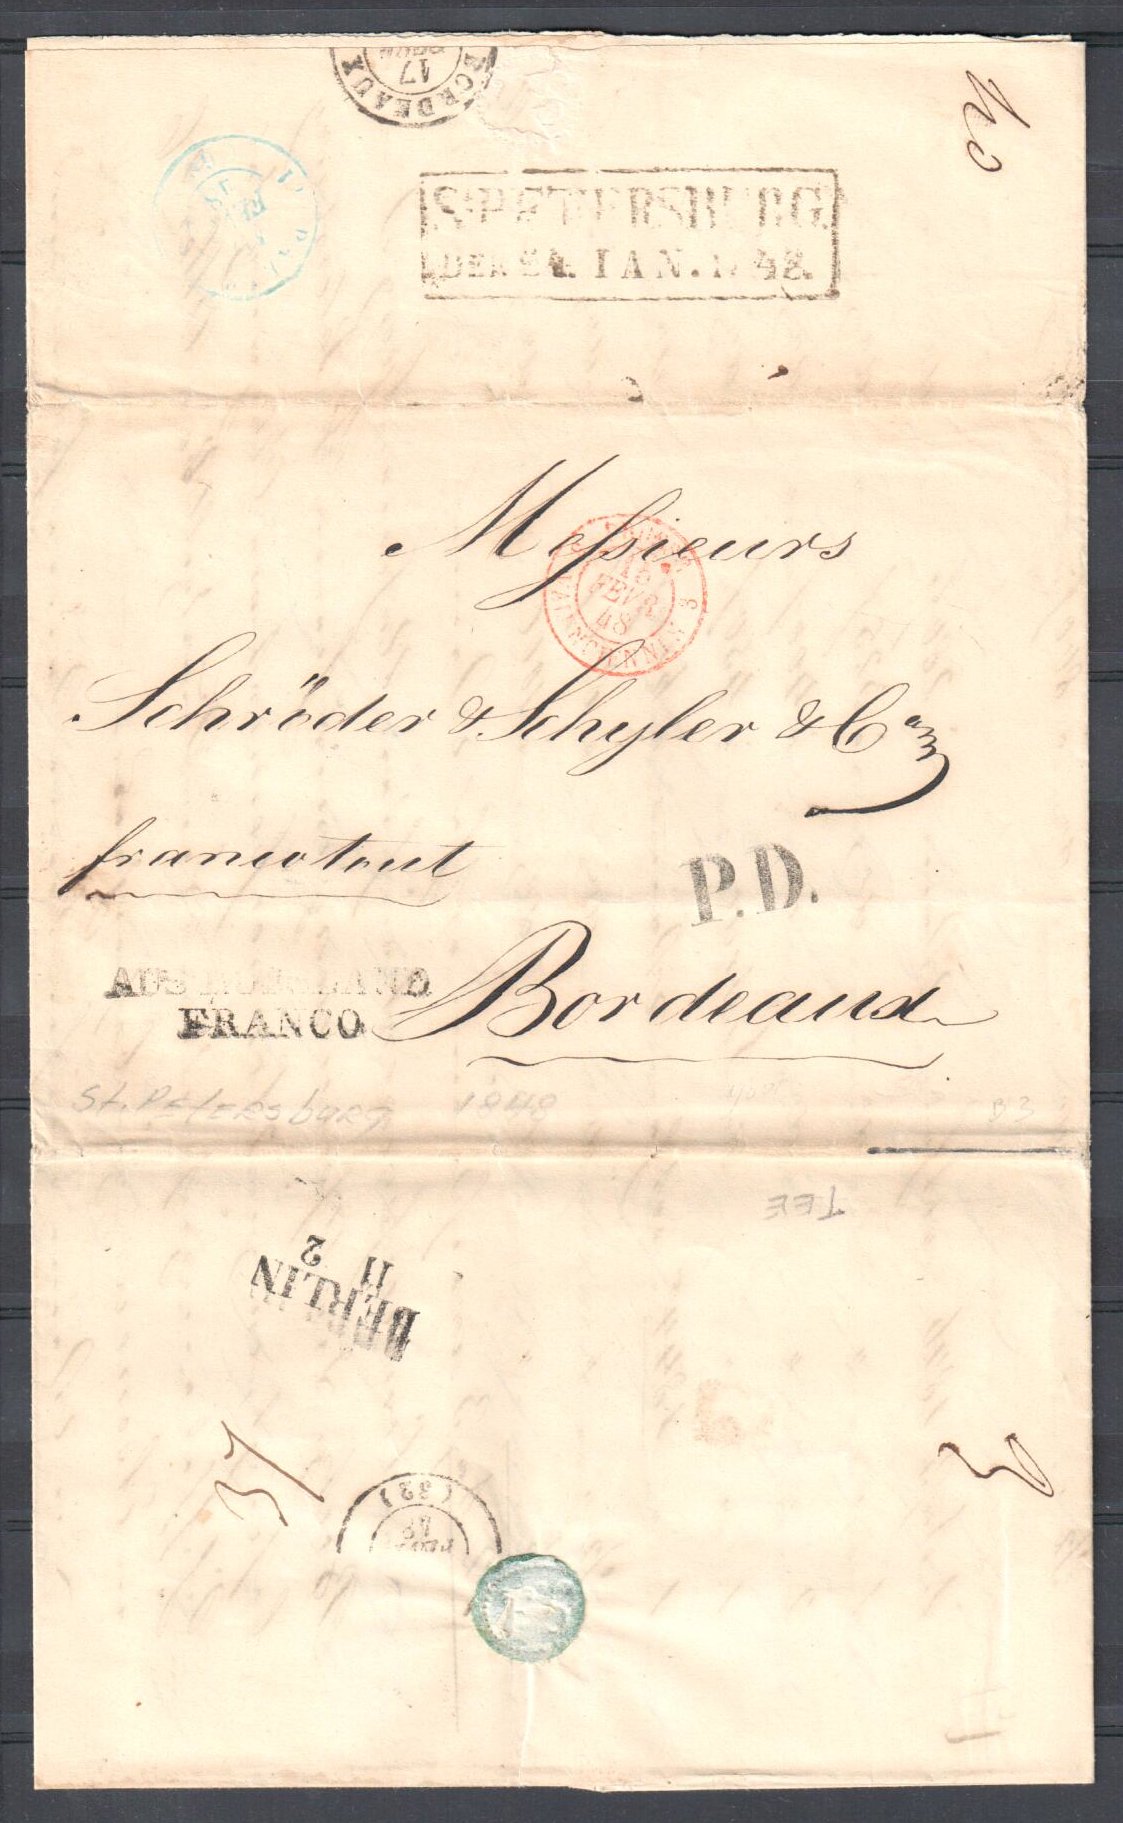 BORDEAUX
17
St. PETERSBURG
DEN 24. IAN. 1848.
Messieurs
PRUSSE 3 VALENCIENNES 3
15
FEVR.
48
Schröder & Schyler & Co
franco tout
P.D.
AUS RUSSLAND
FRANCO
Bordeaux
St. Petersburg 1848
B 3
TEE
BERLIN
11 2
37
(32)